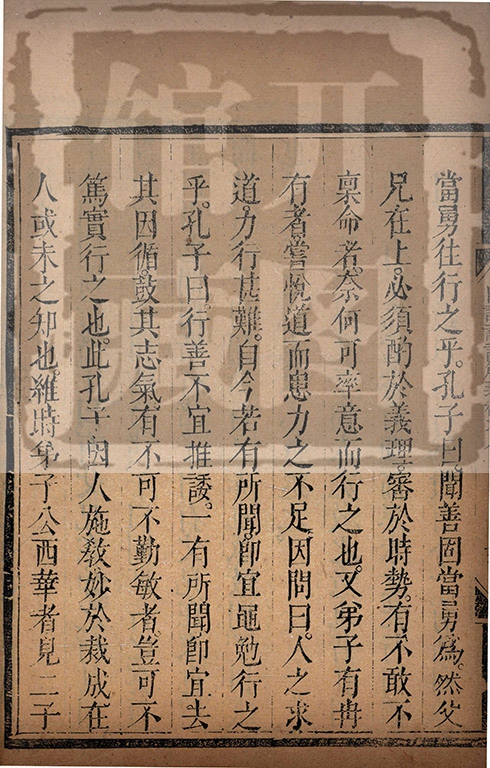 當勇往行之乎。孔子曰。聞善固當勇爲。然父
兄在上。必須酌於義理。審於時勢。有不敢不
禀命者。奈何可率意而行之也。又弟子有冉
有者。嘗悅道而患力之不足。因問曰。人之求
道。力行甚難。自今若有所聞。卽宜黽勉行之
乎。孔子曰。行善不宜推諉。一有所聞卽宜去
其因循。鼓其志氣。有不可不勤敏者。豈可不
篤實行之也。此孔子因人施敎妙於裁成在
人或未之知也。維時弟子公西華者見二子